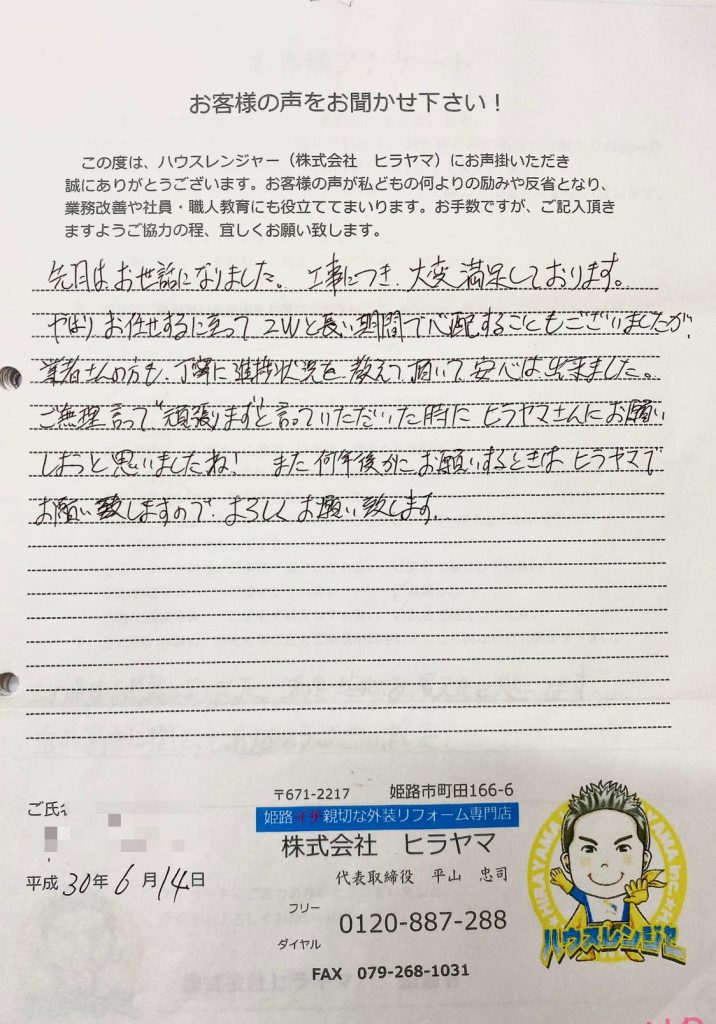 お客様の声をお聞かせ下さい！
この度は、ハウスレンジャー（株式会社　ヒラヤマ）にお声掛いただき
誠にありがとうございます。お客様の声が私どもの何よりの励みや反省となり、
業務改善や社員・職人教育にも役立ててまいります。お手数ですが、ご記入頂き
ますようご協力の程、宜しくお願い致します。
先月はお世話になりました。工事につき、大変満足しております。
やはりお任せするに至って2Wと長い期間で心配することもございましたが、
業者さんの方も、丁寧に進捗状況を教えて頂いて安心は出来ました。
ご無理言って"頑張ります"と言っていただいた時にヒラヤマさんにお願い
しようと思いましたね！また何年後かにお願いするときはヒラヤマで
お願い致しますので、よろしくお願い致します。
ご氏
平成30年6月14日
〒671-2217　姫路市町田166-6
姫路イチ親切な外装リフォーム専門店
株式会社　ヒラヤマ
代表取締役　平山　忠司
フリー
ダイヤル
0120-887-288
FAX　079-268-1031
HIRAYAMA
ハウスレンジャー